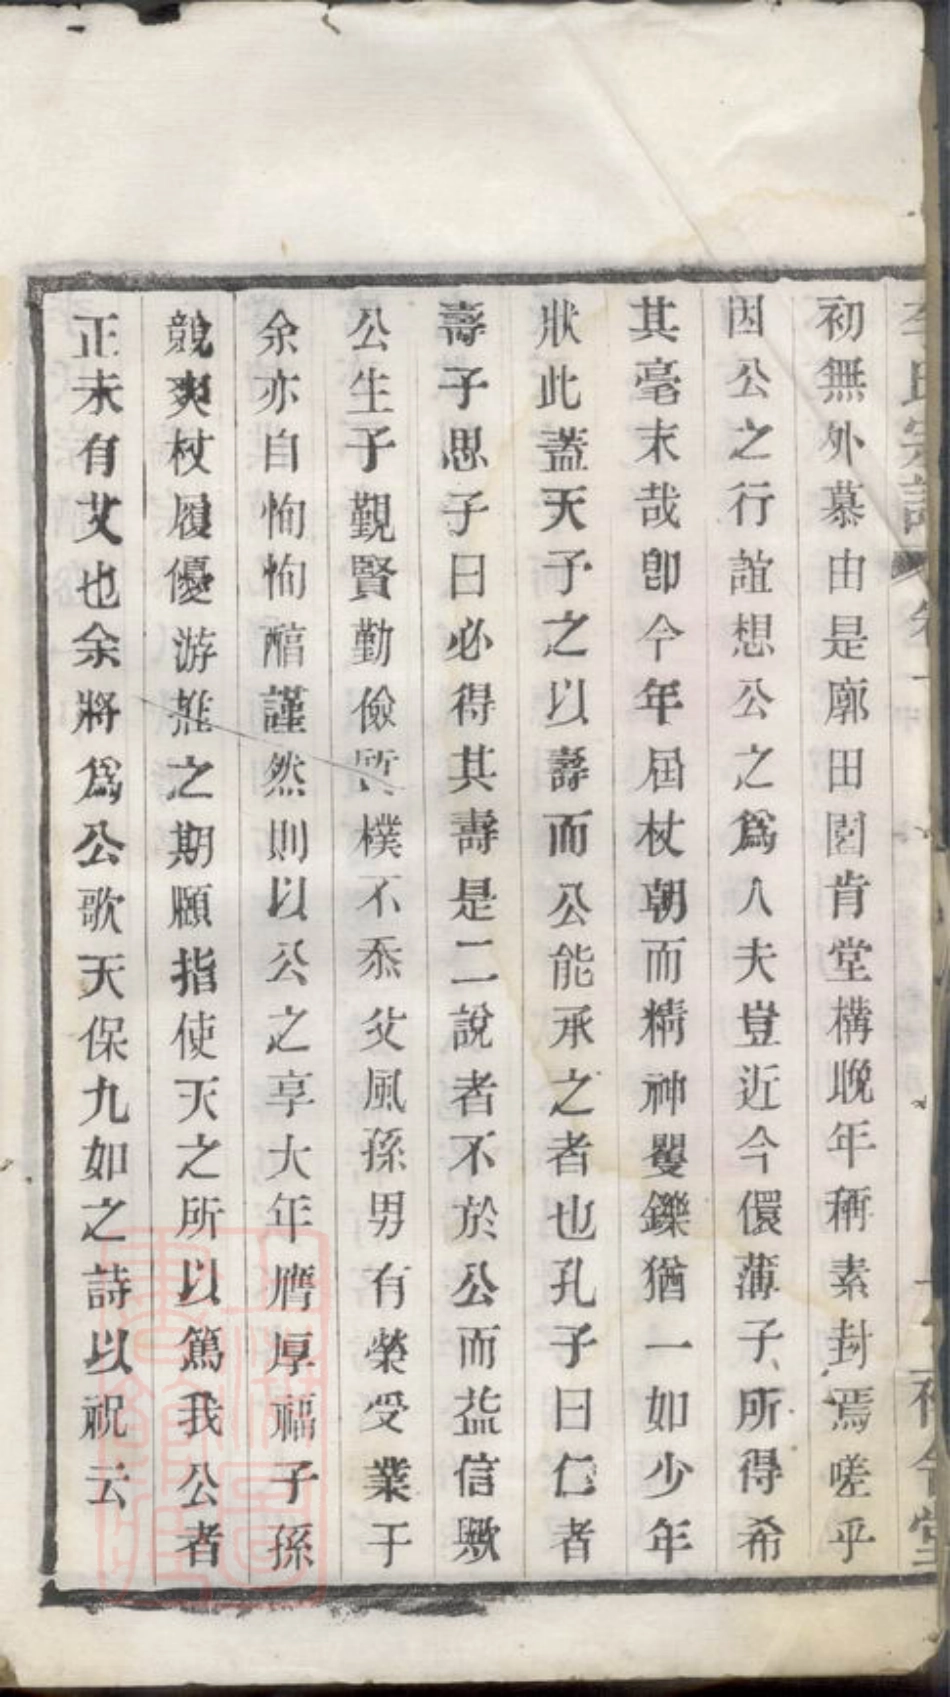 李氏宗譜
初無外慕由是廓田園肯堂構晚年稱素封焉嗟乎
因公之行誼想公之爲人夫豈近今儇薄子所得希
其毫末哉卽今年屆杖朝而精神矍鑠猶一如少年
狀此蓋天子之以壽而公能承之者也孔子曰仁者
壽子思子曰必得其壽是二說者不於公而益信歟
公生子覲賢勤儉質樸不忝父風孫男有榮受業于
余亦自恂恂醕謹然則以公之享大年膺厚福子孫
競爽杖履優游推之期願指使天之所以篤我公者
正未有艾也余將爲公歌天保九如之詩以祝云